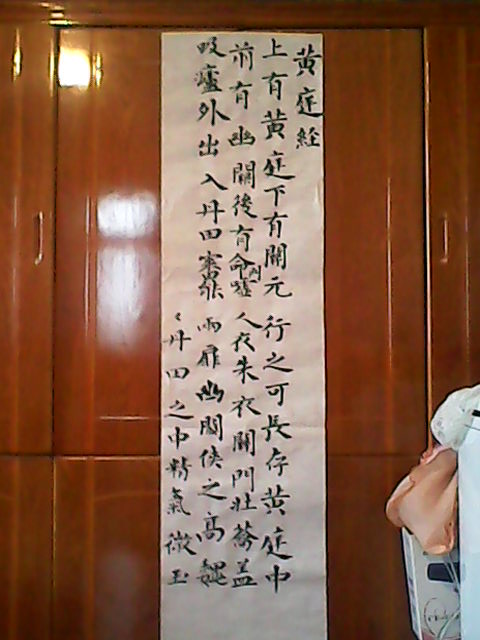 黄庭經
上有黄庭下有關元
前有幽關後有命門噓
吸廬外出入丹田審能
行之可長存黄庭中
人衣朱衣關門壯蘥盖
兩扉幽關侠之高巍
〻丹田之中精氣微玉